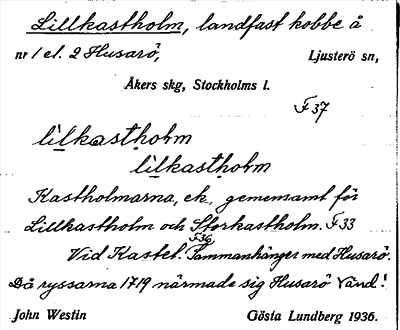 Lillkastholm, landfast kobbe å
nr 1 el. 2 Husarö, Ljusterö sn,
Åkers skg, Stockholms l.
F 37
lilkastholm
lilkastholm
Kastholmarna, ek., gemensamt för
Lillkastholm och Storkastholm. F 33
F 36
Vid Kastel. Sammanhänger med Husarö.
Då ryssarna 1719 närmade sig Husarö
John Westin Gösta Lundberg 1936.